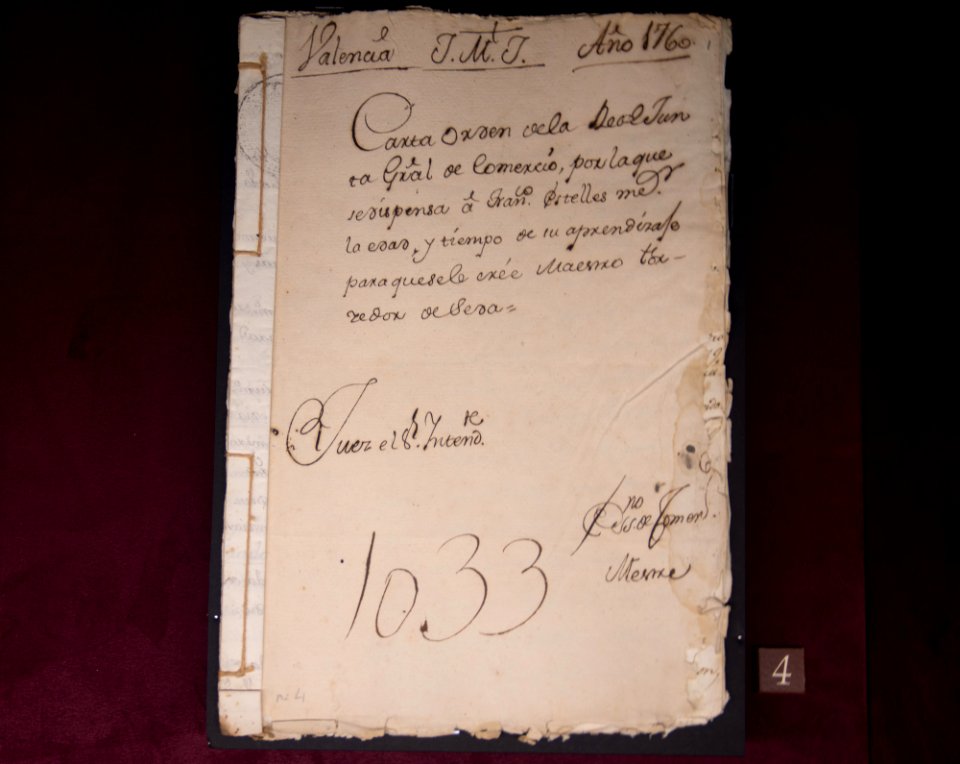 Valencia J.M.J. Año 1760.
Carta Orden de la Real Jun
ta Gral de Comercio, por la que
se dispensa a Franco. Estelles menor
la edad, y tiempo de su aprendizase
para que se le crée Maestro tor-
zedor de Seda=
Juez el Sr. Intende.
Essno. de Comerd.
1033
n 4
4